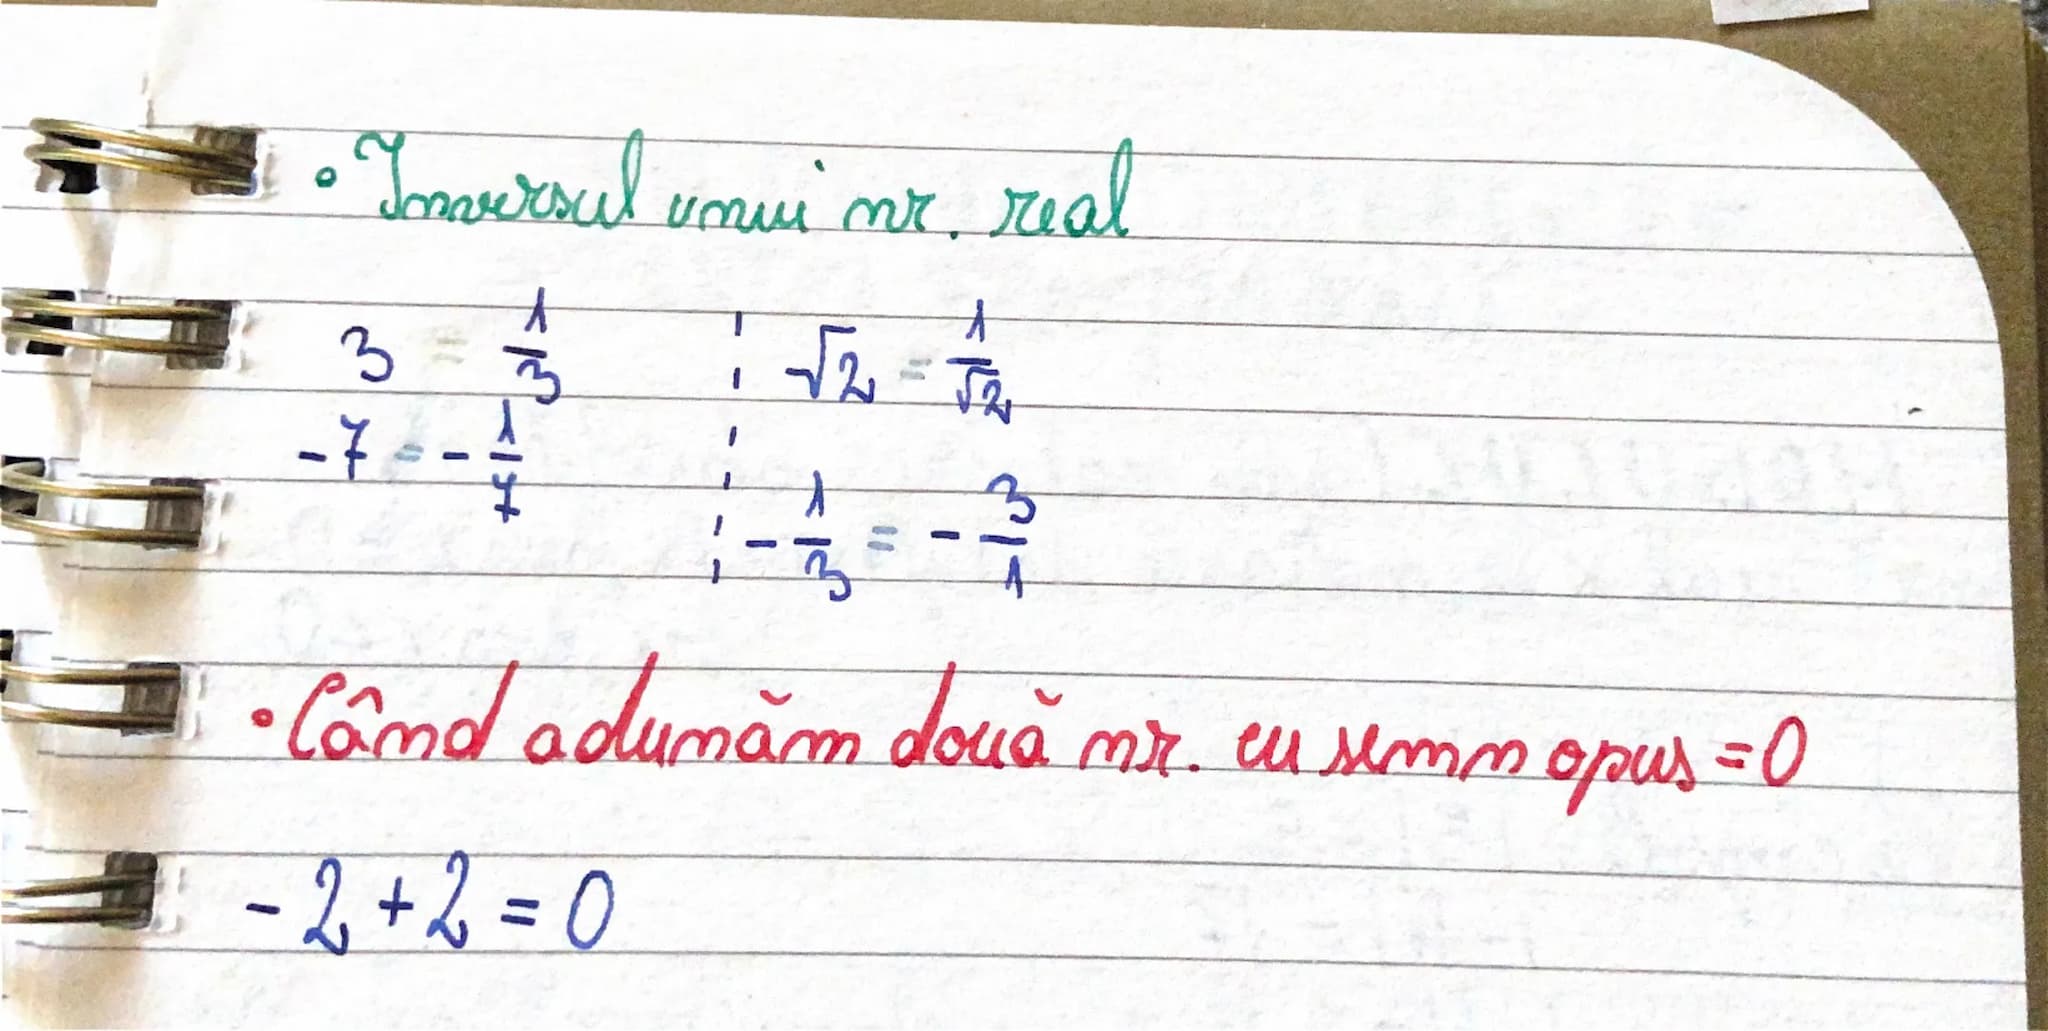 • Inversul unui nr. real
3 = 1/3 ¦ √2 = 1/√2
-7 = - 1/7
¦ - 1/3 = - 3/1
• Când adunăm două nr. cu semn opus = 0
- 2 + 2 = 0